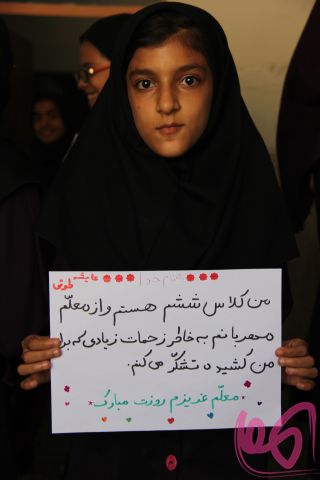 بنام خدا
عایشه طوقی
من کلاس ششم هستم و از معلّم
مهربانم به خاطر زحمات زیادی که برا
من کشیده تشکّر می کنم.
معلّم عزیزم روزت مبارک